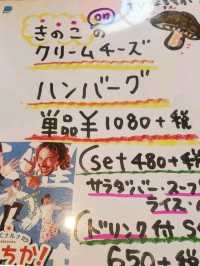 きのこの
クリームチーズ
ハンバーグ
単品¥1080+税
(set 480+税
サラダバー・スープ
ライス・
(ドリンク付 S
650+税
ちか!